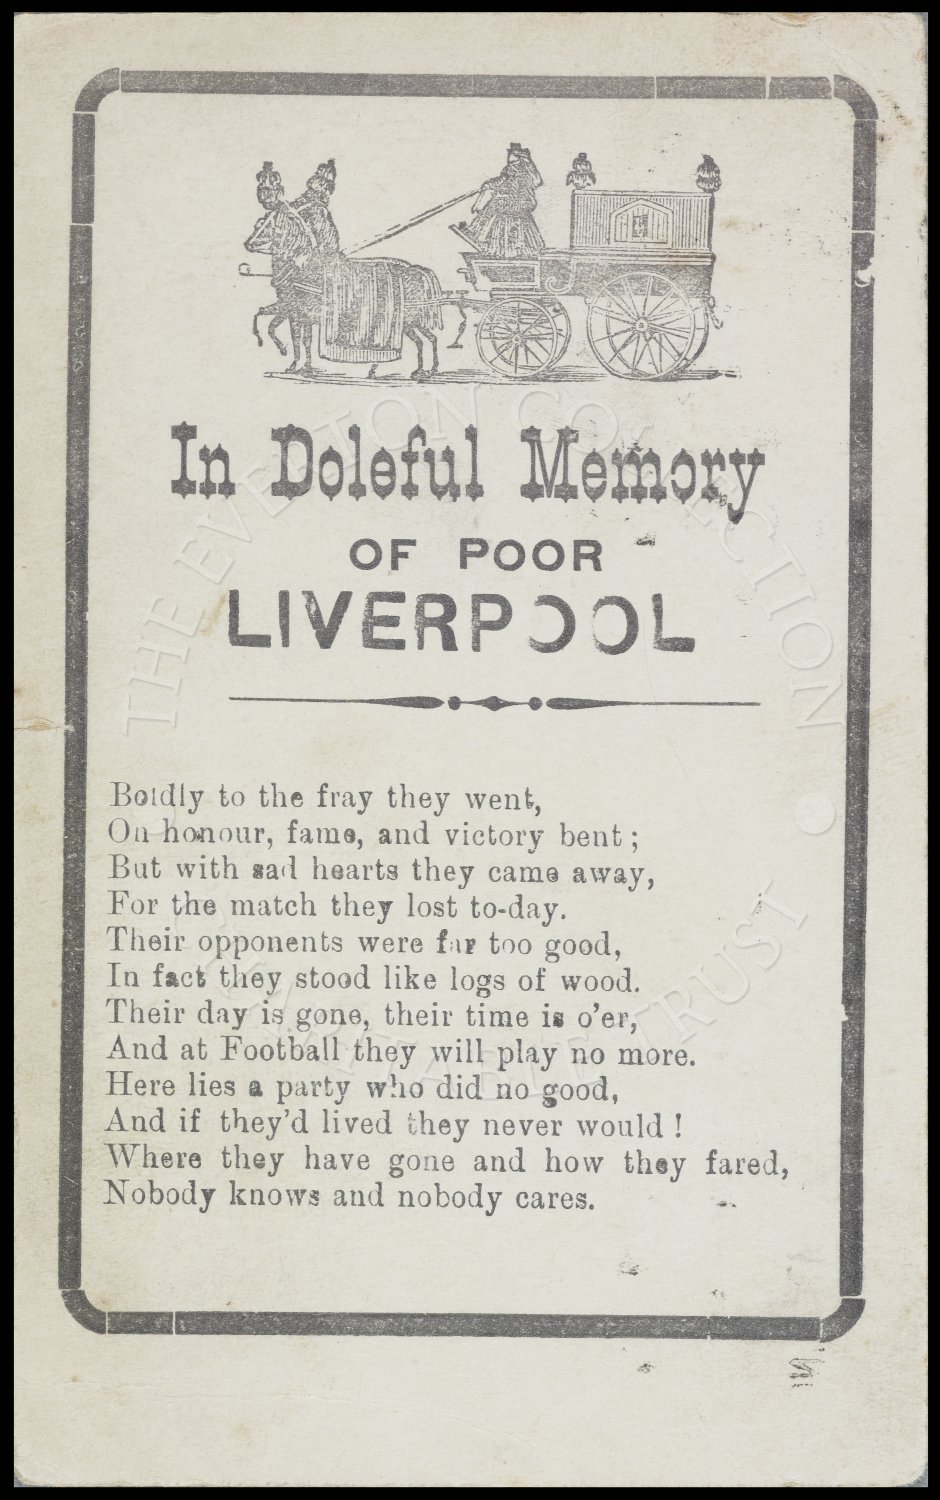 In Doleful Memory
OF POOR
LIVERPOOL
Boldly to the fray they went,
On honour, fame, and victory bent;
But with sad hearts they came away,
For the match they lost to-day.
Their opponents were far too good,
In fact they stood like logs of wood.
Their day is gone, their time is o'er,
And at Football they will play no more.
Here lies a party who did no good,
And if they'd lived they never would!
Where they have gone and how they fared,
Nobody knows and nobody cares.
THE EVERTON COLLECTION
CHARITABLE TRUST